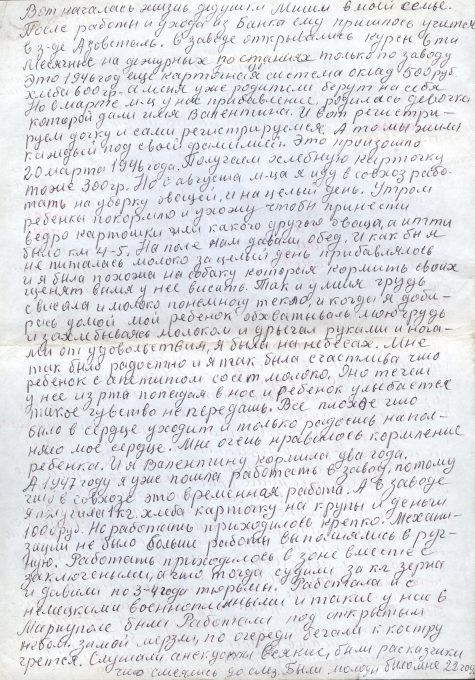 Вот началась жизнь дедушки Миши в моей семье.
После работы и ухода из банка ему пришлось учится
в з-де Азовсталь. В заводе открывались курсы в ти
месячние на дежурных по станиях только по заводу
Это 1946 год еще карточная система оклад 500 руб.
хлеба 600 гр. а меня уже родители берут на себя
Но в марте м-ц у нас прибавление, родилась девочка
которой дали имя Валентина. И вот регистри-
руем дочку и сами регистрируемся. А то мы жили
каждый под своей фамилией. Это произошло
20 марта 1946 года. Получаем хлебную карточку
тоже 300 гр. Но с августа м-ца я иду в совхоз рабо-
тать на уборку овощей, и на целый день. Утром
ребенка покормлю и ухожу чтобы принести
ведро картошки или какого другого овоща, а итти
было км 4-5. На поле нам давали обед. И как бы я
не питалась молоко за целый день прибавлялось
и я была похожа на собаку которая кормить своих
щенят вымя у нее висить. Так и у меня грудь
свисала и молоко понемногу текло, и когда я доби-
рась домой мой ребенок обхватывал мою грудь
и захлебываясь молоком и дрыгал руками и нога-
ми от удовольствия, я была на небесах. Мне
так было радостно и я так была счастлива что
ребенок с апетитом сосет молоко. Оно течет
у нее из рта попадая в нос и ребенок улыбается
такое чувство не передашь. Все плохое что
было в сердце уходит и только радость напол-
няло мое сердце. Мне очень нравилось кормление
ребенка. И я Валентину кормила два года.
А 1947 году я уже пошла работать в завод, потому
что в совхозе это временная работа. А в заводе
я получила 1 кг. хлеба карточку на крупы и деньги
1000 руб. Но работать приходилось крепко. Механи-
зации не было больше работы выполнялись в руч-
ную. Работать приходилось в зоне вместе с
заключеными, а что тогда судили за кг зерна
и давили по 3-4 года тюрьмы. Работала и с
немецкими военнопленными и такие у нас в
Мариуполе были Работали под открытым
небом зимой мерзли, по очереди бегали к костру
грется. Слушали анекдоты всякие, были рассказчики
что смеялись до слез. Были молоды было мне 22 год